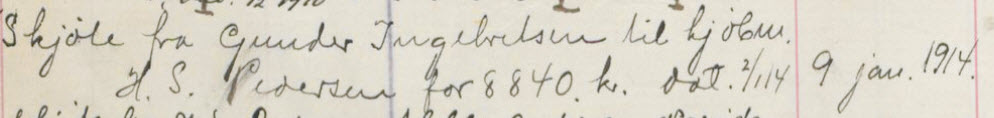 Skjöte fra Gunder Ingebretsen til kjöbm.
H. S. Pedersen for 8840. kr. dat. 2/1 14 9 jan. 1914.